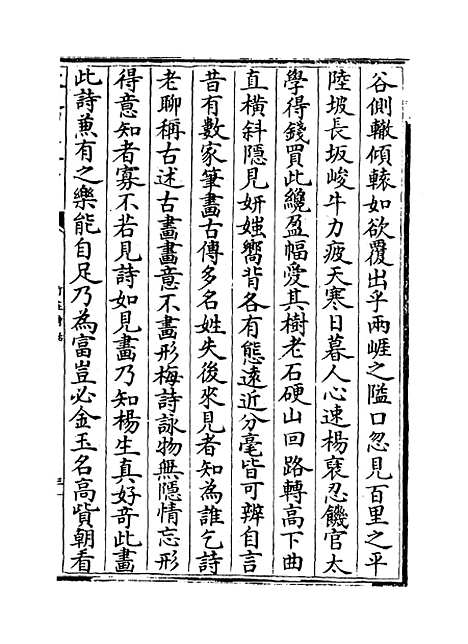 谷側轍傾轅如欲覆出乎兩崕之隘口忽見百里之平
陸坡長坂峻牛力疲天寒日暮人心速楊襃忍饑官太
學得錢買此纔盈幅愛其樹老石硬山回路轉高下曲
直橫斜隱見妍媸嚮背各有態遠近分毫皆可辨自言
昔有數家筆畫古傳多名姓失後來見者知為誰乞詩
老聊稱古述古畫畫意不畫形梅詩詠物無隱情忘形
得意知者寡不若見詩如見畫乃知楊生真好奇此畫
此詩兼有之樂能自足乃為富豈必金玉名高貲朝看